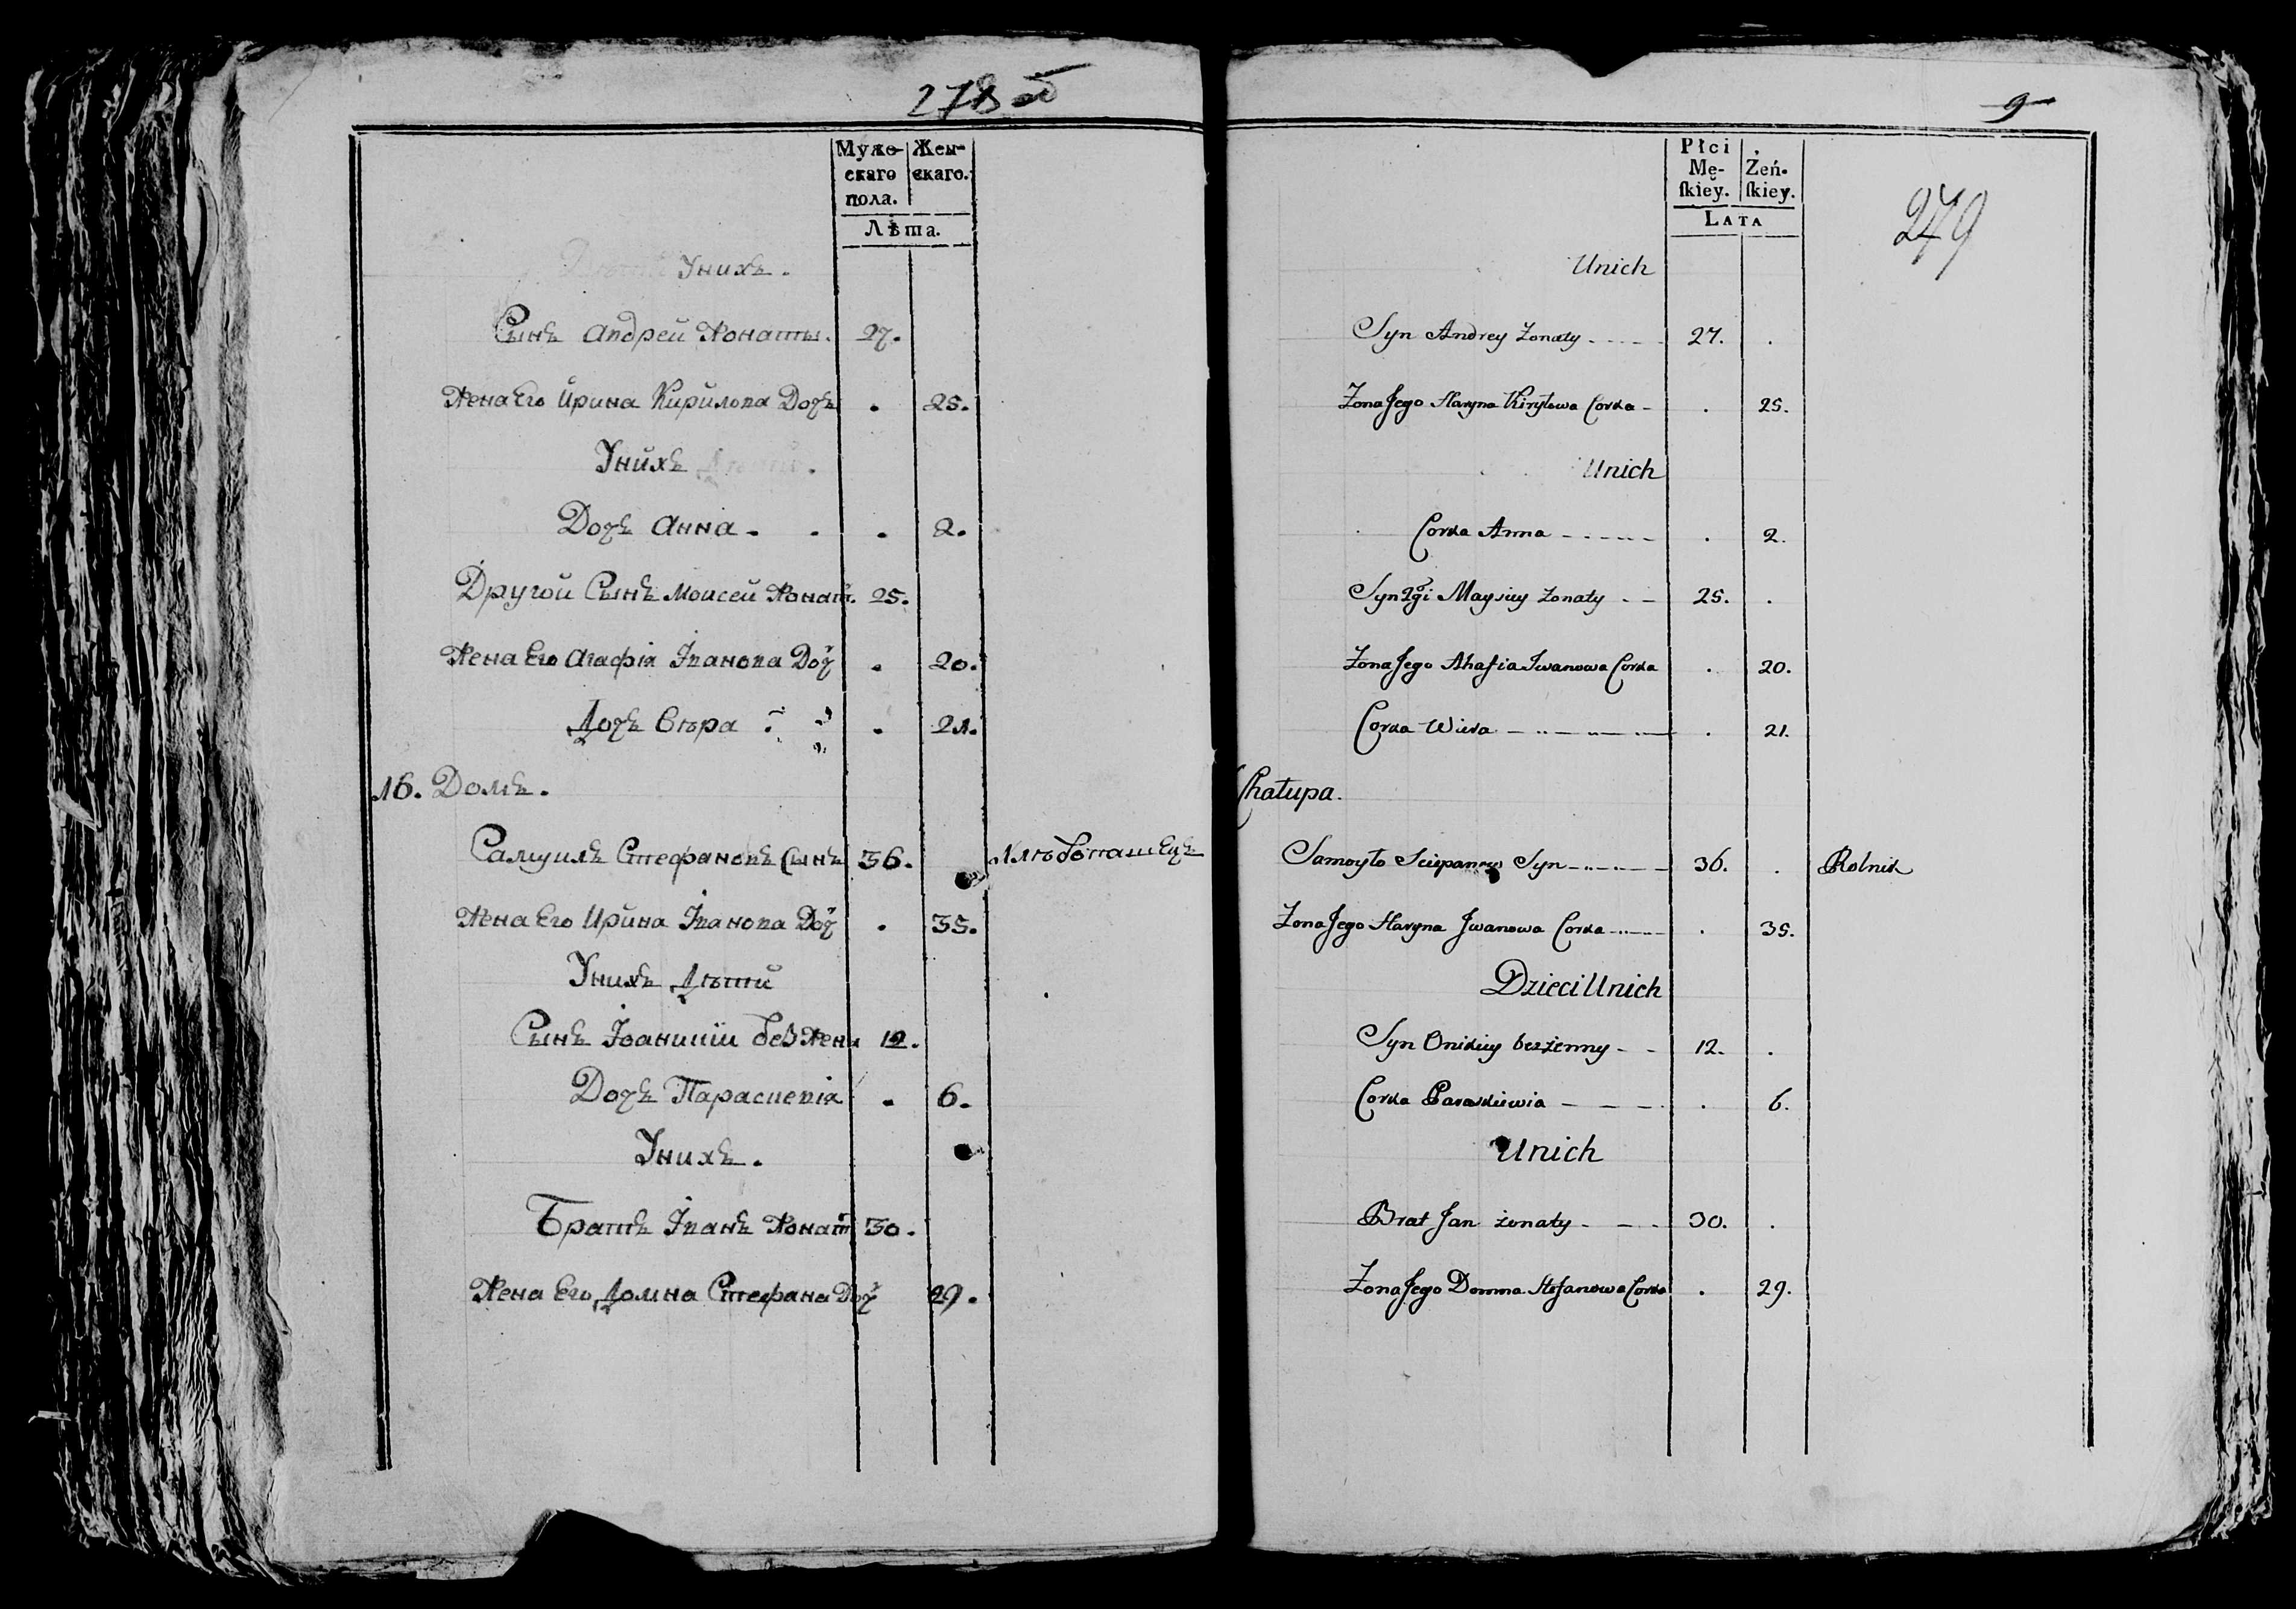 278 об
Мужескаго пола.
Женскаго.
Лѣта.
Унихъ.
Сынъ Андрей Жонаты. 27.
Жена Его Ирина Кирилова Дочь . 25.
Унихъ
Дочь Анна . . . 2.
Другой Сынъ Моисей Жонат. 25.
Жена Его Агафія Іванова Доч . 20.
Дочь Вѣра . 21.
16. Домъ.
Самуилъ Стефановъ Сынъ 36. Хлѣбопашецъ
Жена Его Ирина Іванова Доч . 35.
Унихъ Дѣти
Сынъ Іоаникій без Жены 12.
Дочь Параскевія . 6.
Унихъ.
Братъ Іванъ Жонат 30.
Жена Его Домна Стефана Доч 29.
9
279
Płci
Mę-
ſkiey.
Żeń-
ſkiey.
LATA
Unich
Syn Andrey Żonaty 27. .
Żona Jego Haryna Kiryłowa Corka . 25.
Unich
Corka Anna . 2.
Syn 2gi Maysiey żonaty 25. .
Żona Jego Ahafia Iwanowa Corka . 20.
Corka Wiera . 21.
Chałupa.
Samoyło Sciepanow Syn 36. . Rolnik
Żona Jego Haryna Jwanowa Corka . 35.
Dzieci Unich
Syn Onikiey bezżenny 12. .
Corka Paraskiewia . 6.
Unich
Brat Jan żonaty 30. .
Żona Jego Domna Stefanowa Corka . 29.